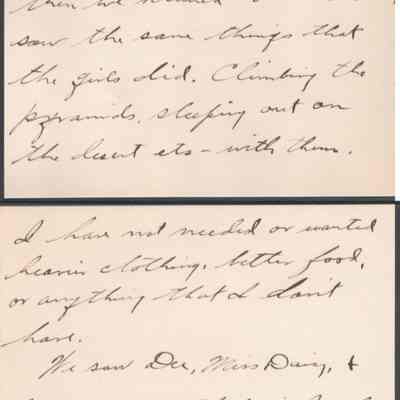 then we
saw the same things that
the girls did. Climbing the
pyramids, sleeping out on
the desert etc - with them.
I have not needed or wanted
heavier clothing, better food,
or anything that I don't
have.
We saw Dee, Miss Daisy, +